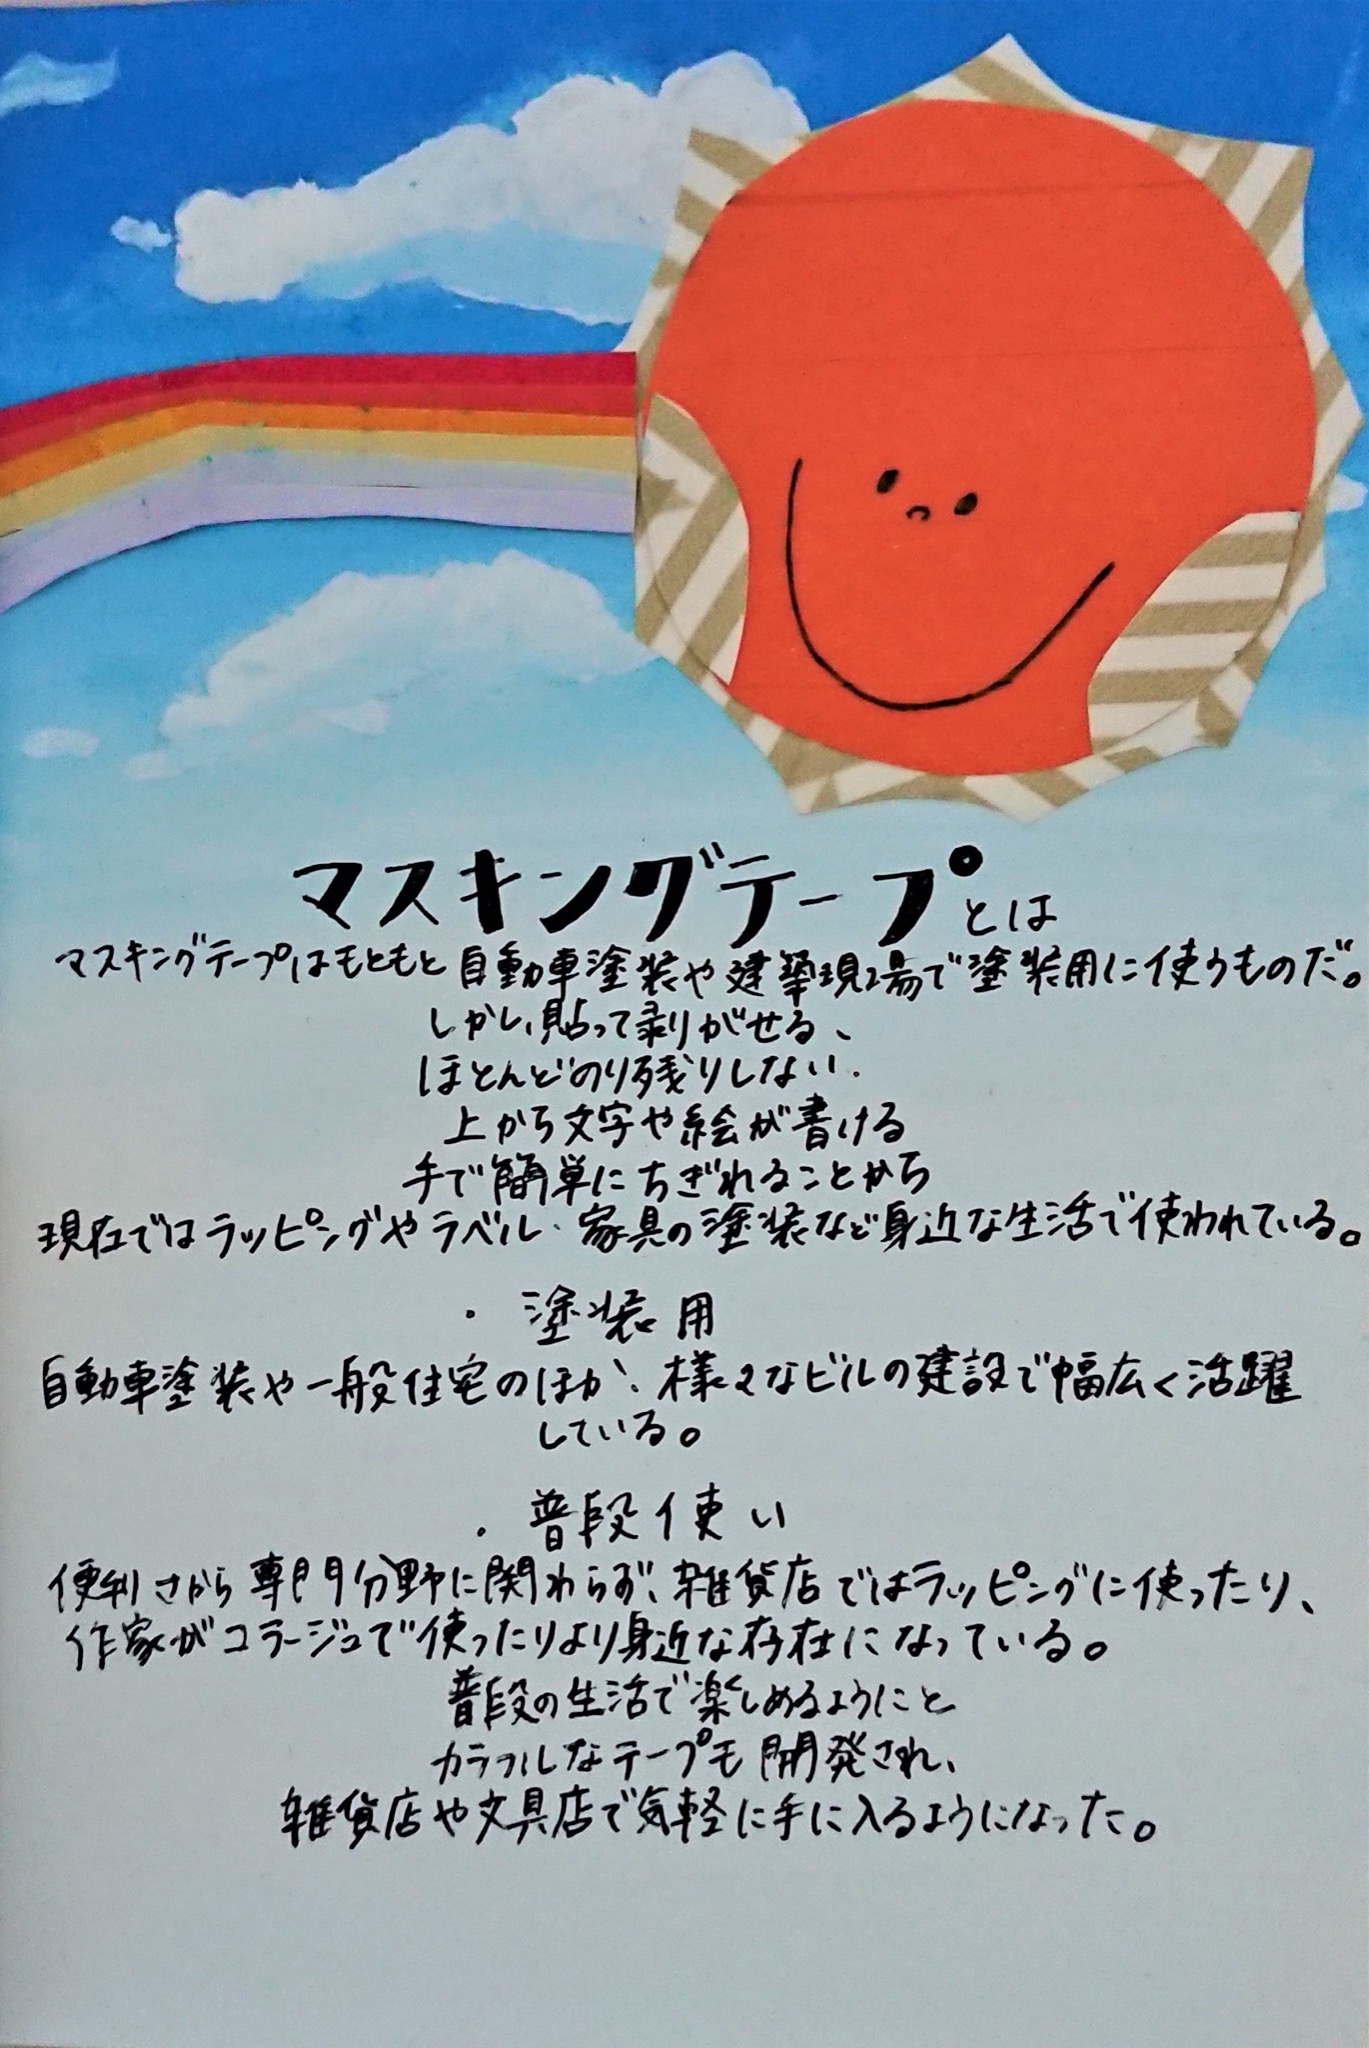 マスキングテープとは
マスキングテープはもともと自動車塗装や建築現場で塗装用に使うものだ。
しかし、貼って剥がせる、
ほとんどのり残りしない、
上から文字や絵が書ける
手で簡単にちぎれることから
現在ではラッピングやラベル、家具の塗装など身近な生活で使われている。
・塗装用
自動車塗装や一般住宅のほか、様々なビルの建設で幅広く活躍
している。
・普段使い
便利さから専門分野に関わらず、雑貨店ではラッピングに使ったり、
作家がコラージュで使ったりより身近な存在になっている。
普段の生活で楽しめるようにと
カラフルなテープも開発され、
雑貨店や文具店で気軽に手に入るようになった。